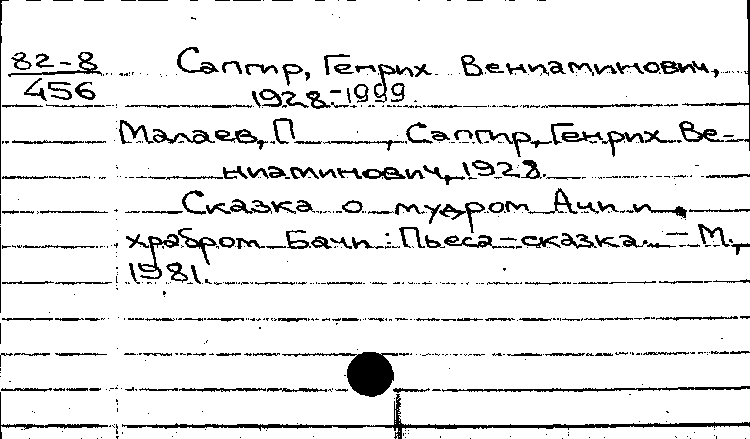 82-8
456
Сапгир, Генрих Вениаминович,
1928-1999
Малаев, П , Сапгир, Генрих Ве-
ниаминович, 1928
Сказка о мудром Ачи и
храбром Бачи : Пьеса-сказка. - М.,
1981.